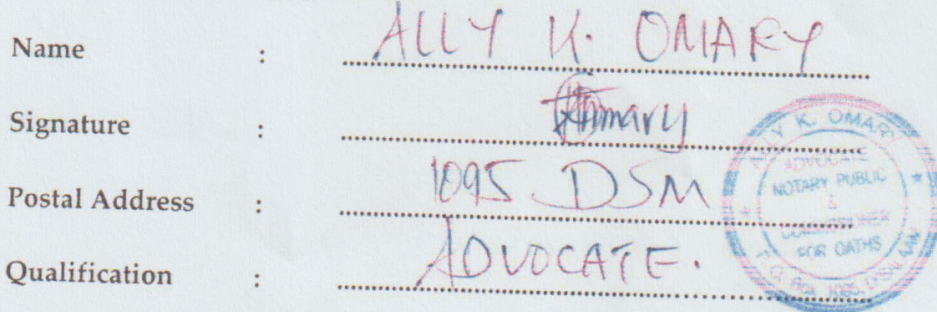 Name : ALLY K. OMARY
Signature : Omary
Postal Address : 1095 DSM
Qualification : ADVOCATE.
ALLY K. OMARY
ADVOCATE
NOTARY PUBLIC
&
COMMISSIONER
FOR OATHS
BOX 1095